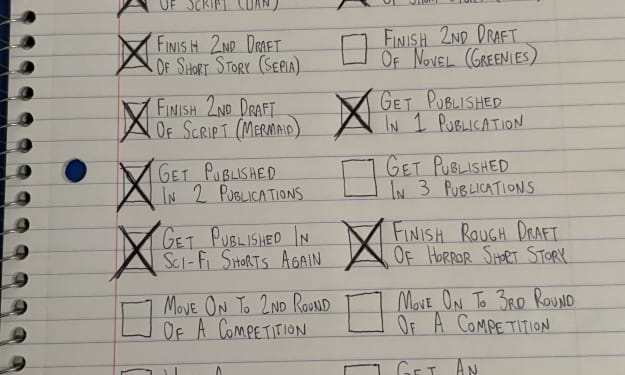 OF SCRIPT (DAN)
FINISH 2ND DRAFT
OF SHORT STORY (SEPIA)
FINISH 2ND DRAFT
OF NOVEL (GREENIES)
FINISH 2ND DRAFT
OF SCRIPT (MERMAID)
GET PUBLISHED
IN 1 PUBLICATION
GET PUBLISHED
IN 2 PUBLICATIONS
GET PUBLISHED
IN 3 PUBLICATIONS
GET PUBLISHED IN
SCI-FI SHORTS AGAIN
FINISH ROUGH DRAFT
OF HORROR SHORT STORY
MOVE ON TO 2ND ROUND
OF A COMPETITION
MOVE ON TO 3RD ROUND
OF A COMPETITION
GET AN